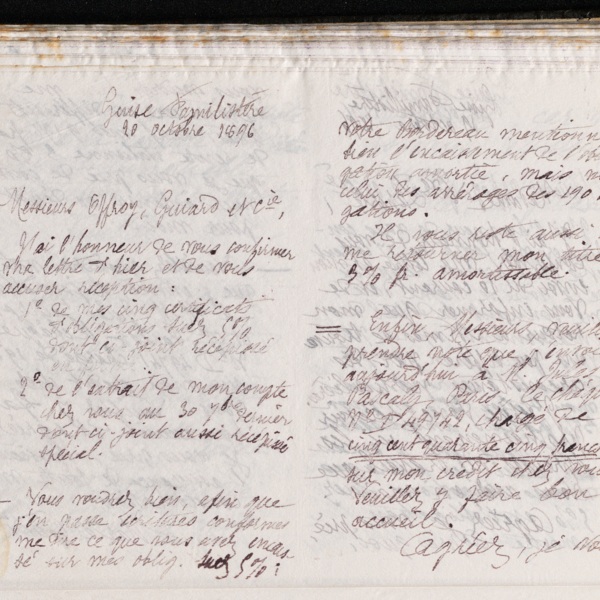 Guise Familistère
20 octobre 1896
Messieurs Offroy, Guiard et Cie,
J'ai l'honneur de vous confirmer
ma lettre d'hier et de vous
accuser réception :
1o de mes cinq certificats
d'obligations 5%
dont ci-joint récépissé
2o de l'extrait de mon compte
chez vous au 30 7bre dernier
dont ci-joint aussi récépissé
spécial.
Vous voudrez bien, afin que
j'en passe écritures conformes
me dire ce que vous avez encais
sé sur mes oblig. 5% :
Votre bordereau mentionne
bien l'encaissement de l'obli
gation amortie, mais
celui des arrérages des 190
gations.
Il vous reste aussi
me retourner mon titre
3% fr. amortissable.
Enfin, Messieurs
prendre note que j'envoie
aujourd'hui à Mr Jules
Pascaly, Paris, le chèque
No chargé de
cinq cent quarante cinq francs
sur mon crédit chez vous
Veuillez y faire bon
accueil.
Agréez, je